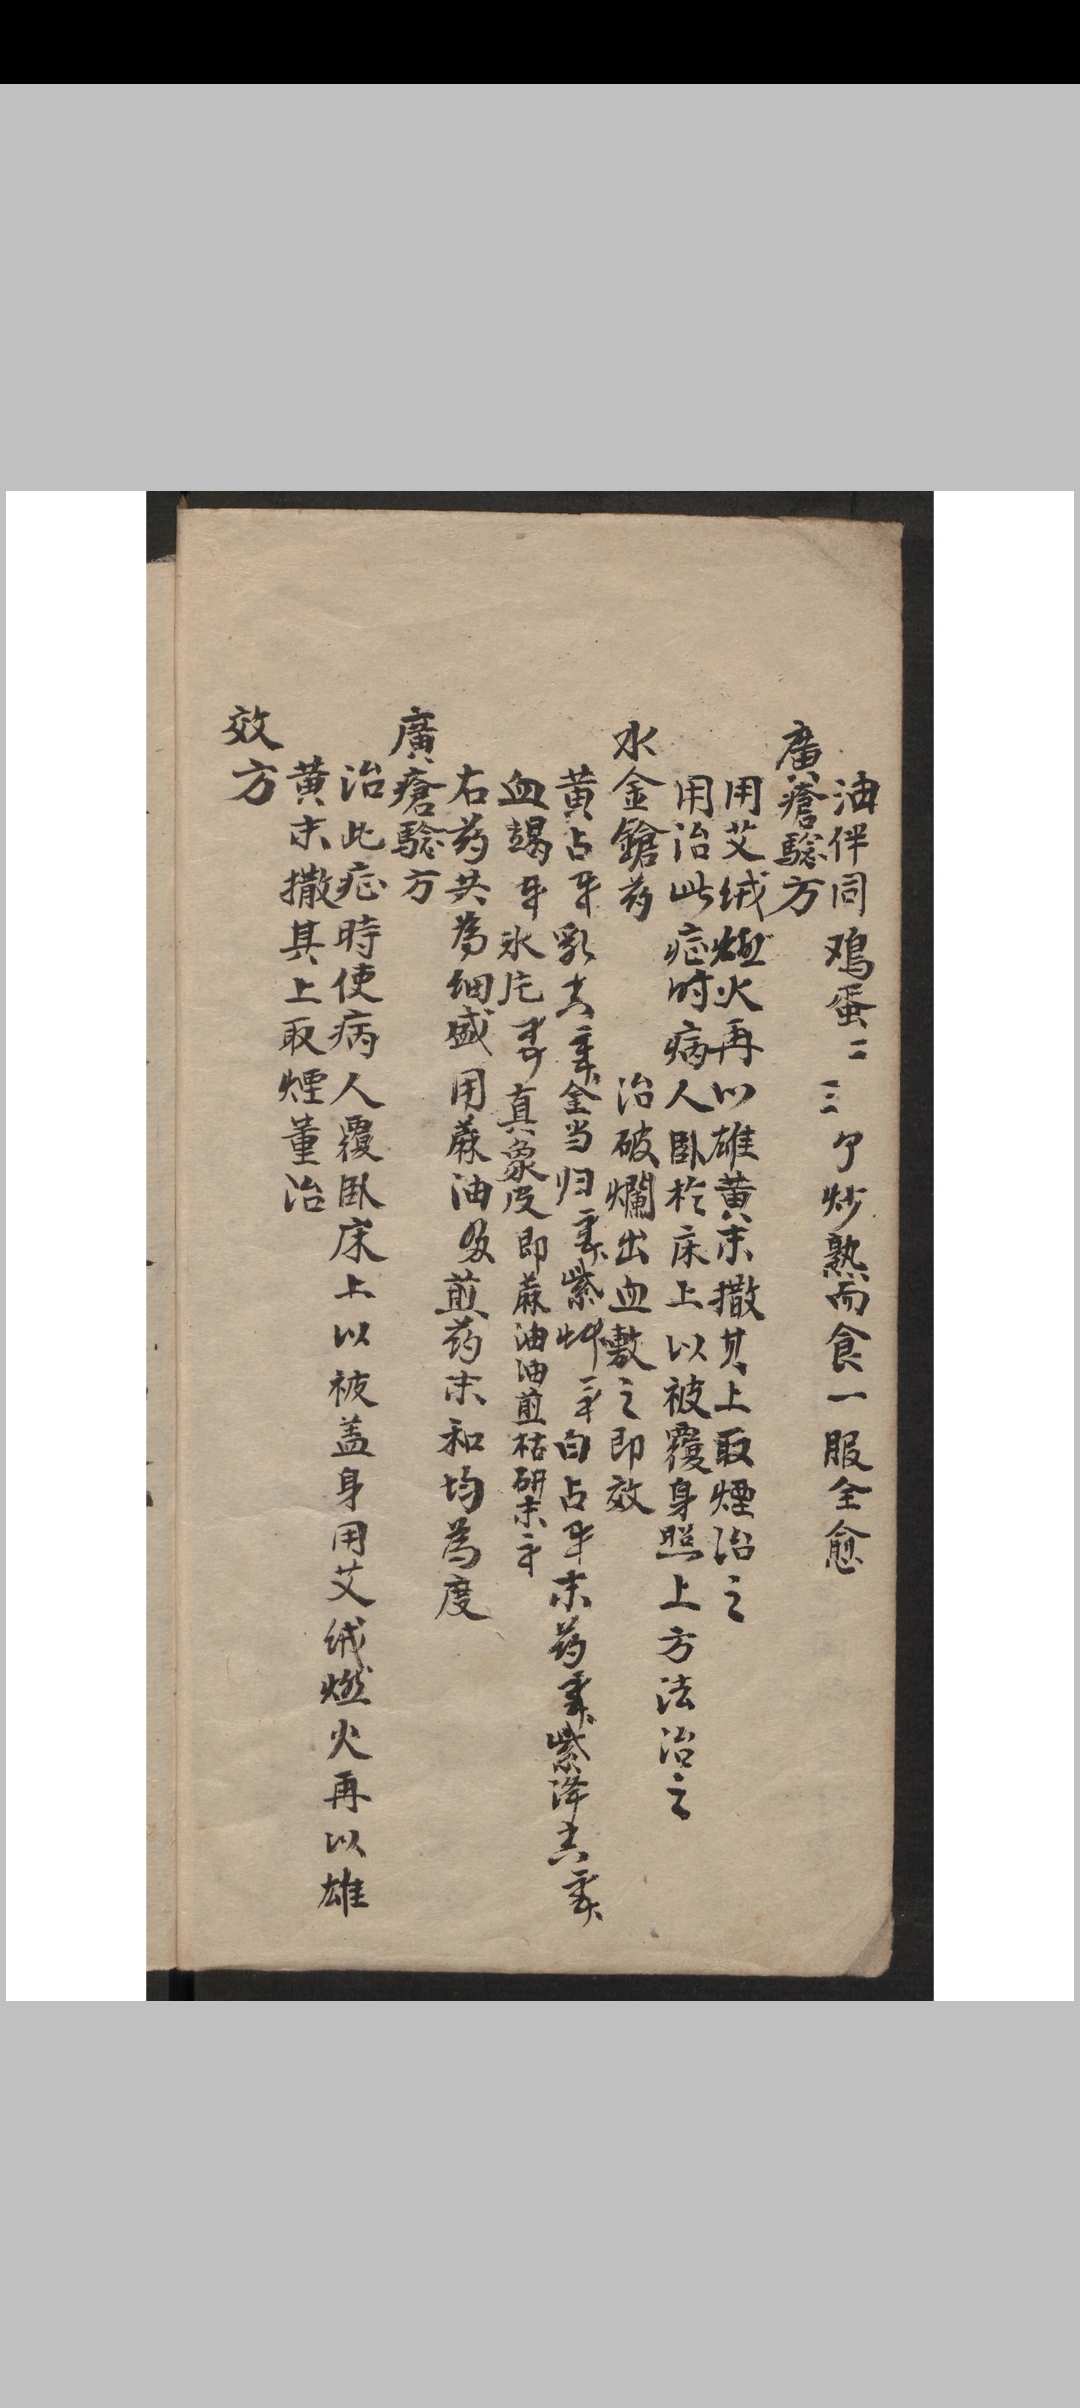 油伴同鸡蛋二三个炒熟而食一服全愈
廣瘡驗方
用艾绒燃火再以雄黄末撒其上取煙治之
用治此症时病人卧於床上以被覆身照上方法治之
水金鎗药　治破爛出血敷之即效
黄占 乳去 全当归 紫艸 白占 末药 紫泽去
血竭 氷片 真象皮即蔴油油煎枯研末
右药共為细盛用蔴油 煎药末和均為度
廣瘡驗方
治此症時使病人覆臥床上以被盖身用艾绒燃火再以雄
黄末撒其上取煙董治
效方